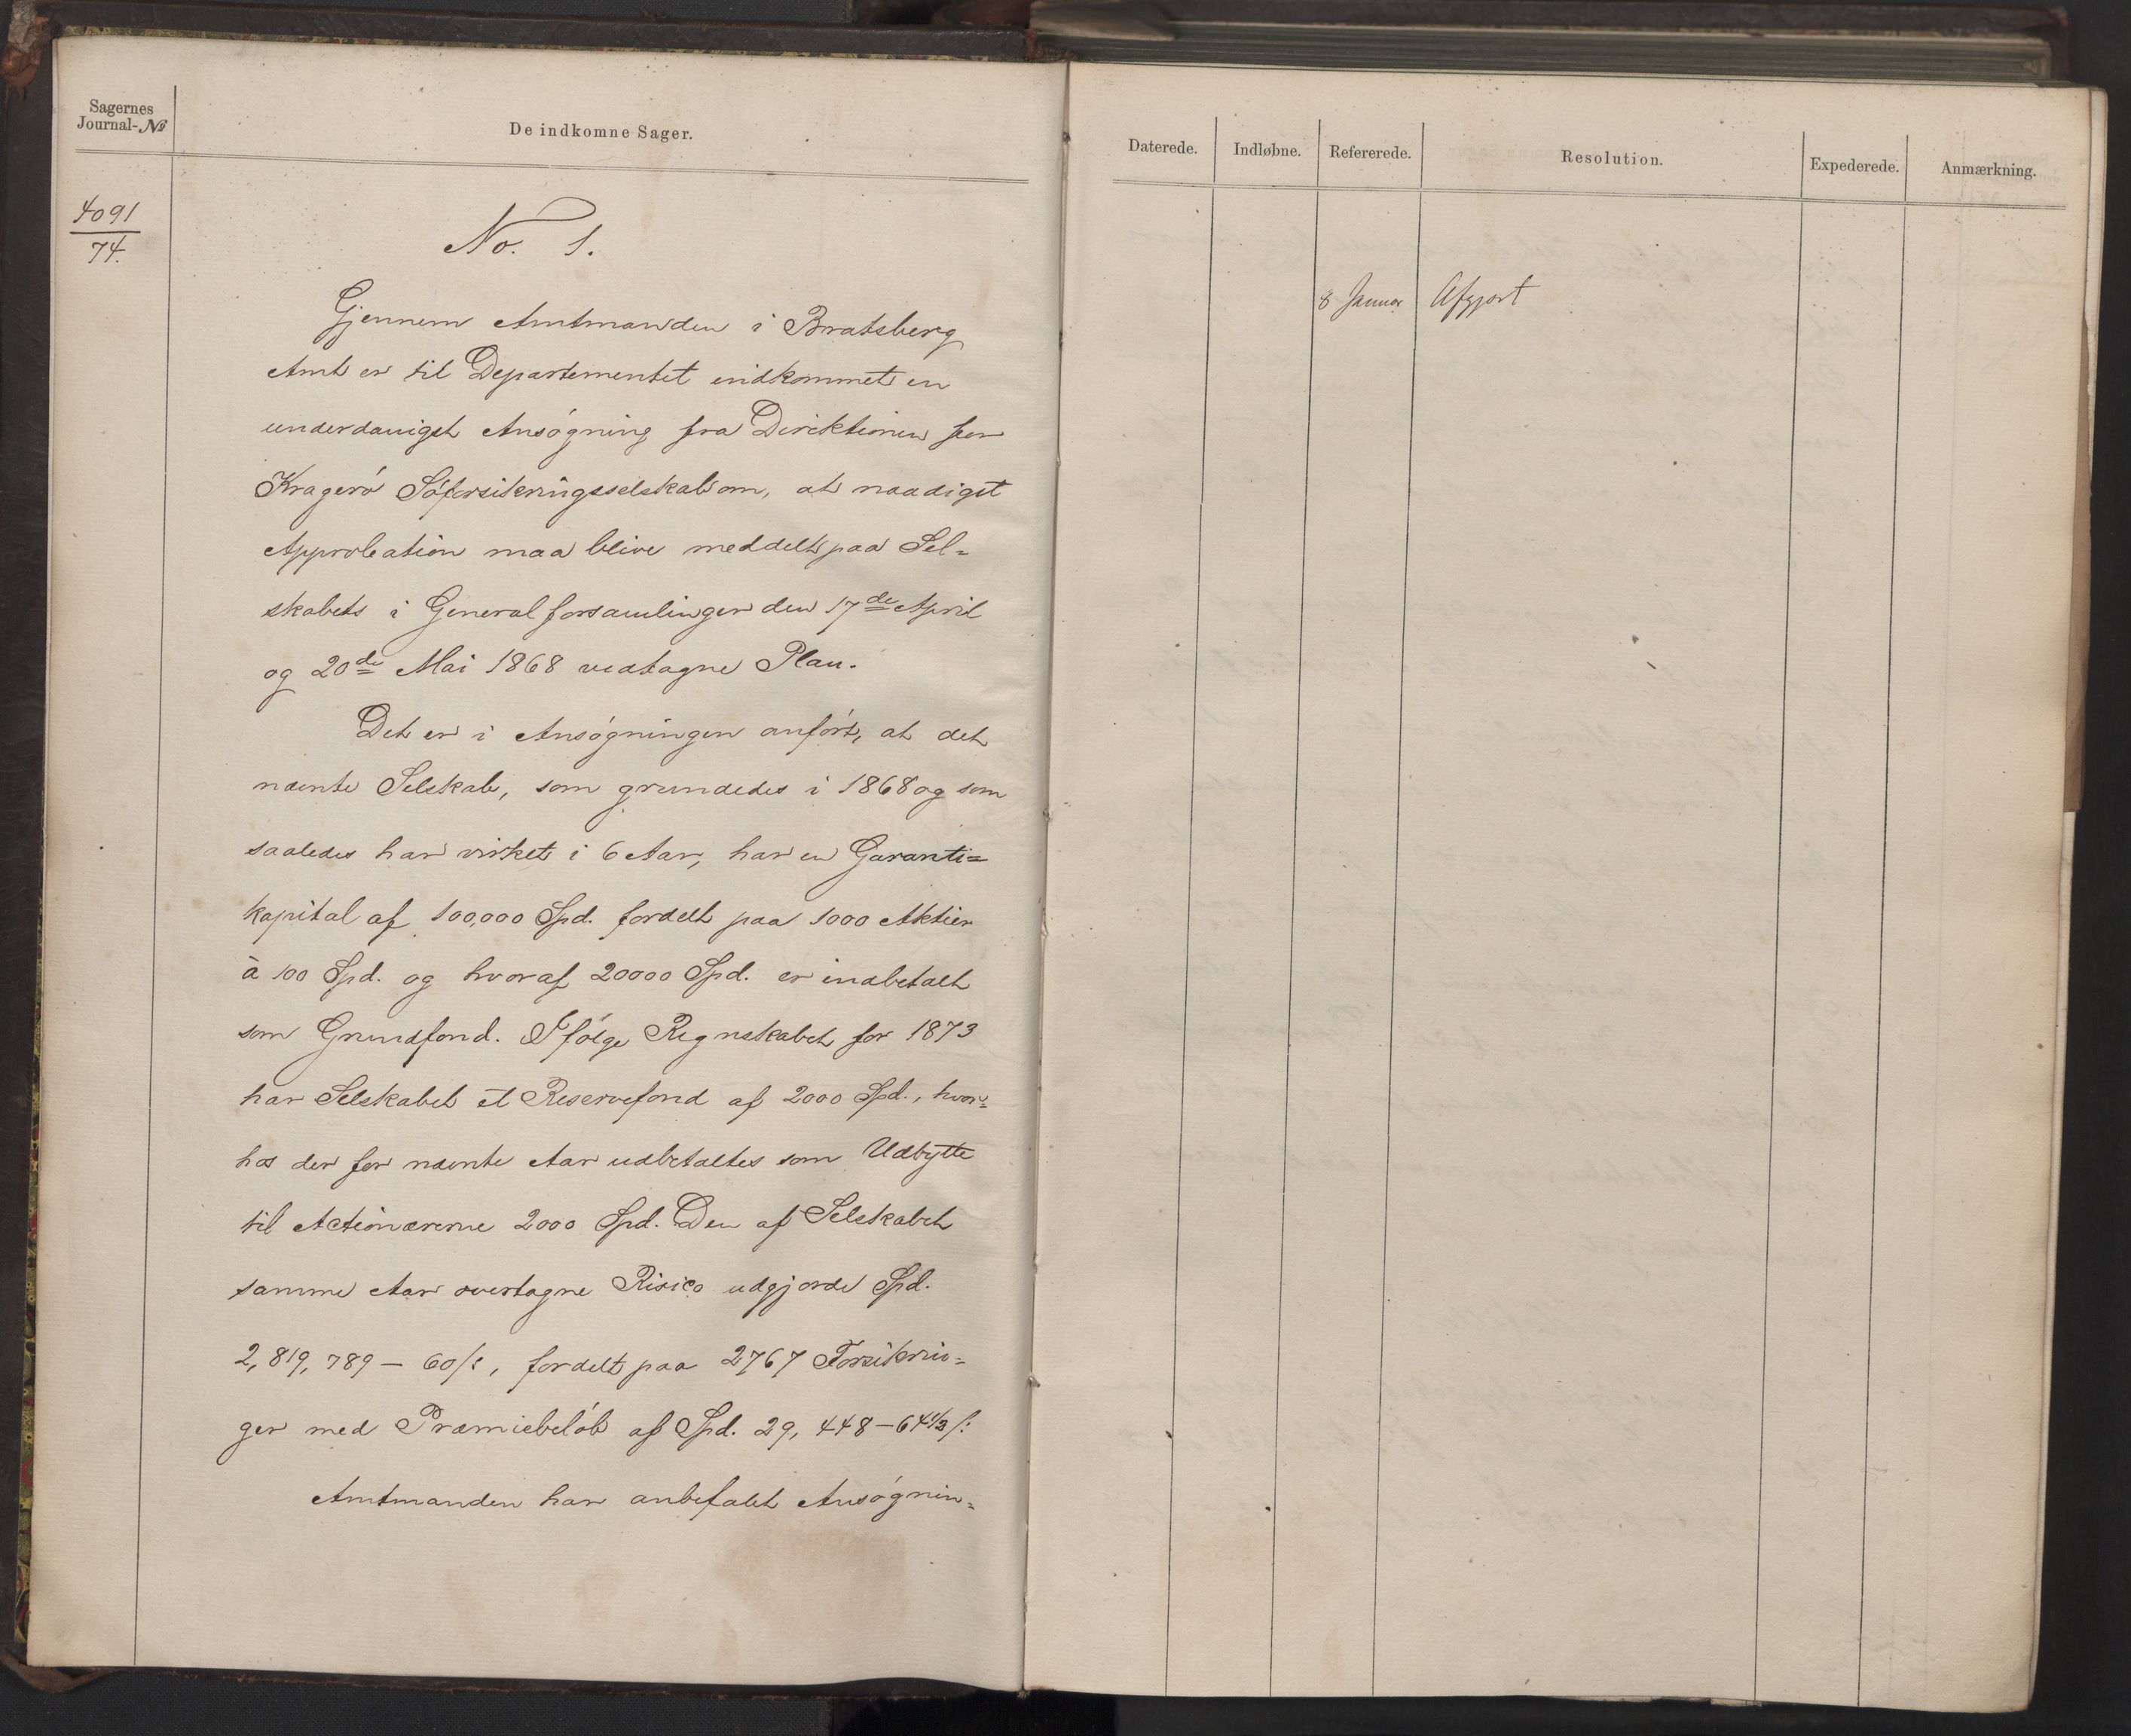 Sagernes
Journal-№
De indkomne Sager.
4091
74.
No. 1.
Gjennem Amtmanden i Bratsberg
Amt er til Departementet indkommet en
underdanigst Ansøgning fra Direktionen for
Kragerø Søforsikringsselskab om, at naadigst
Approbation maa blive meddelt paa Sel-
skabets i Generalforsamlinger den 17de April
og 20de Mai 1868 vedtagne Plan.
Det er i Ansøgningen anført, at det
nævnte Selskab, som grundedes i 1868 og som
saaledes har virket i 6 Aar, har en Garanti-
kapital af 100,000 Spd. fordelt paa 1000 Aktier
à 100 Spd. og hvoraf 20000 Spd. er indbetalt
som Grundfond. Ifølge Regnskabet for 1873
har Selskabet et Reservefond af 2000 Spd., hvor-
hos der for nævnte Aar udbetaltes som Udbytte
til Actionærerne 2000 Spd. Den af Selskabet
samme Aar overtagne Risico udgjorde Spd.
2,819,789 - 60 ſ:, fordelt paa 2767 Forsikrin-
ger med Præmiebeløb af Spd. 29,448 - 64 1/2 ſ:
Amtmanden har anbefalet Ansøgnin-
Daterede.
Indløbne.
Refererede.
Resolution.
Expederede.
Anmærkning.
8 Januar
Afgjort